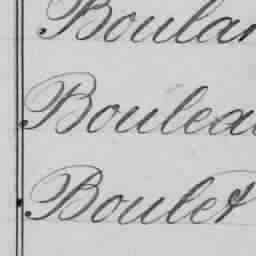 Boulan
Boulea
Boulet